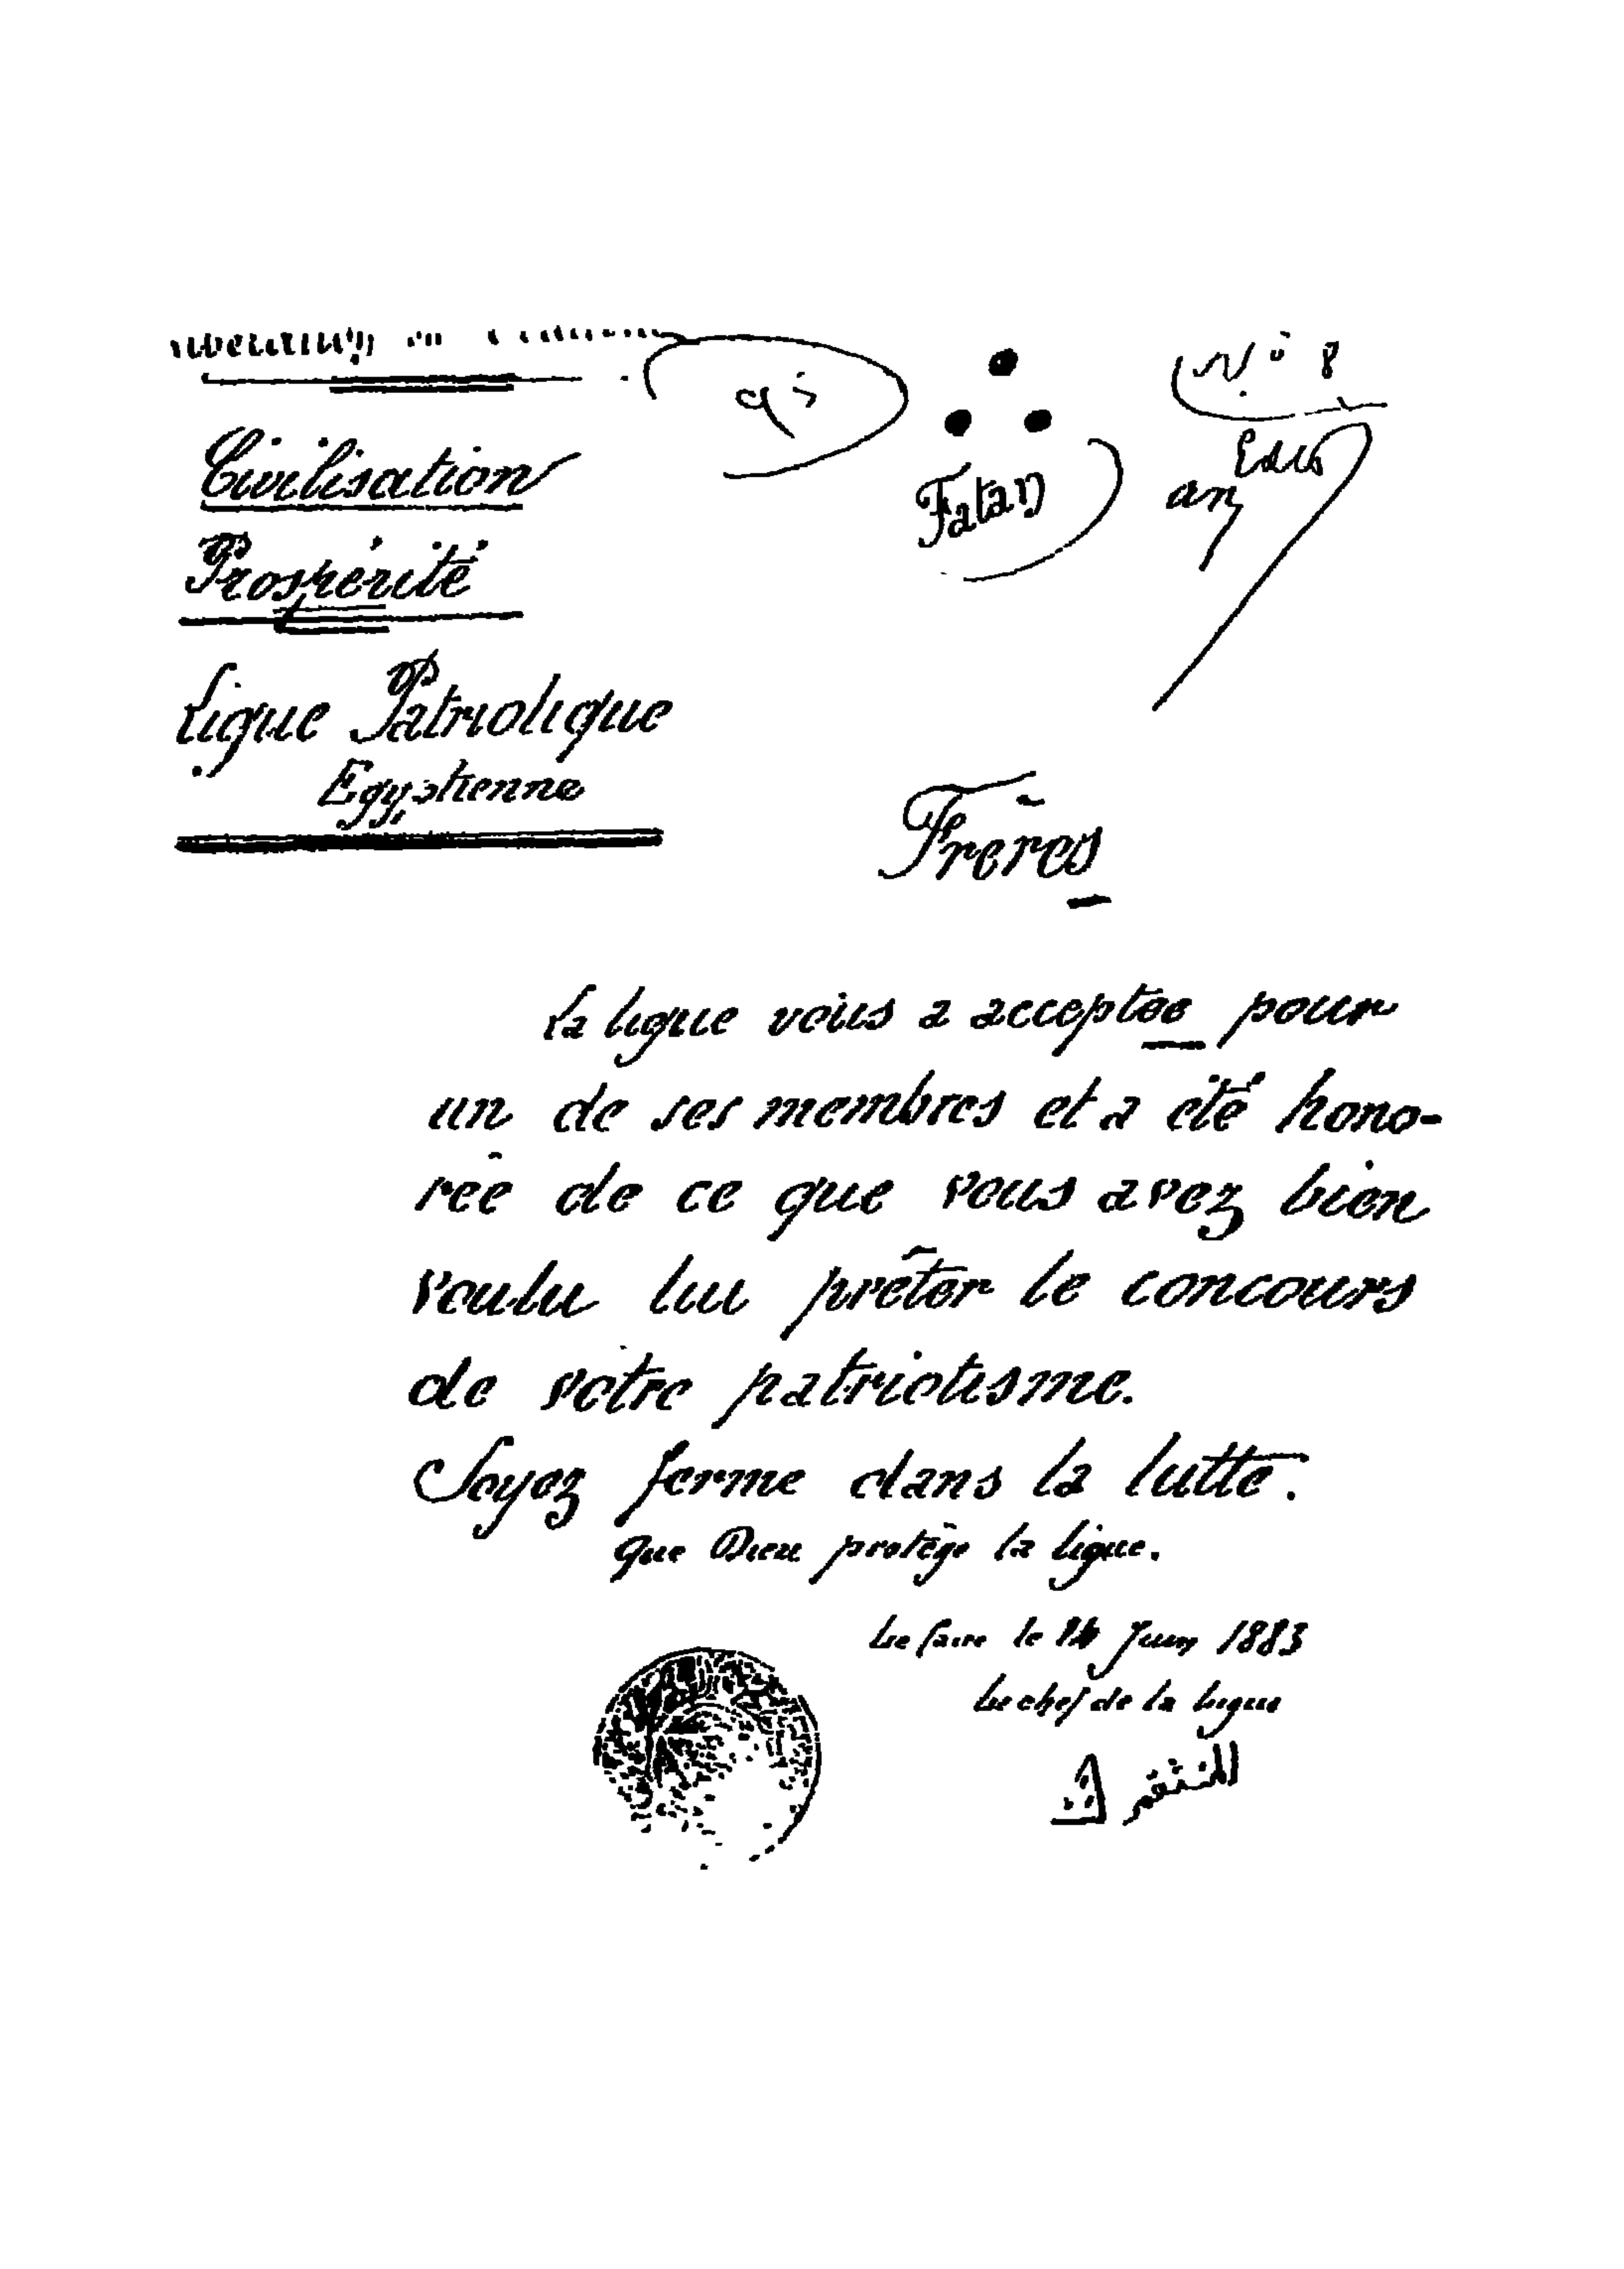 N° 8
Fatan
Civilisation
Prospérité
Ligue Patriotique
Egyptienne
Frères
La ligue vous a acceptée pour
un de ses membres et a été hono-
rée de ce que vous avez bien
voulu lui prêter le concours
de votre patriotisme.
Soyez ferme dans la lutte.
que Dieu protège la ligue.
Le Caire le 14 Juin 1883
Le chef de la ligue
المنتقم